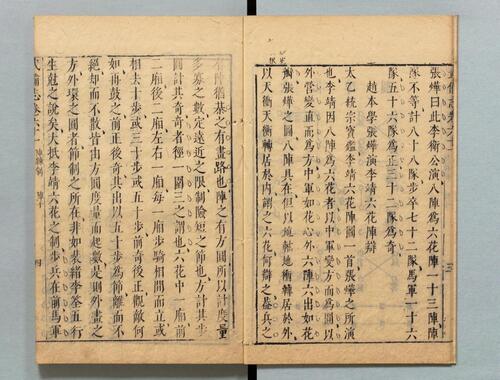 張燁曰此李衛公演八陣爲六花陣一十三陣陣
隊不等計八十八隊步卒七十二隊馬軍一十六
隊五十六隊爲正三十二隊爲奇
趙本學張燁演李靖六花陣辯
太乙統宗寶鑑李靖六花陣圖一首張燁之所演
也李靖因八陣爲六花者以中軍變方而爲圓以
外營變直而爲方中軍如花心外六陣六出如花
瓣張燁之圖八陣具在但以地軸地衝轉居於外
以天衡天衝轉居於內謂之六花何辯之葢兵之
有陣猶基之有畫路也陣之有方圓所以計度量
多寡之數定遠近之限制險短之節也方計其步
圓計其奇奇者徑一圍三之謂也六花中一廂前
二廂後二廂左右一廂每一廂步騎相間而立或
相去十步或三十步或五十步前奇後正觀敵何
如再鼓之前正後奇其出以五十步爲節離而不
絕却而不散皆由方圓度量而起數是則外畫之
方外環之圓者節制之所在非如裴緒李筌五行
生尅之說矣大抵李靖六花之制步兵在前馬軍